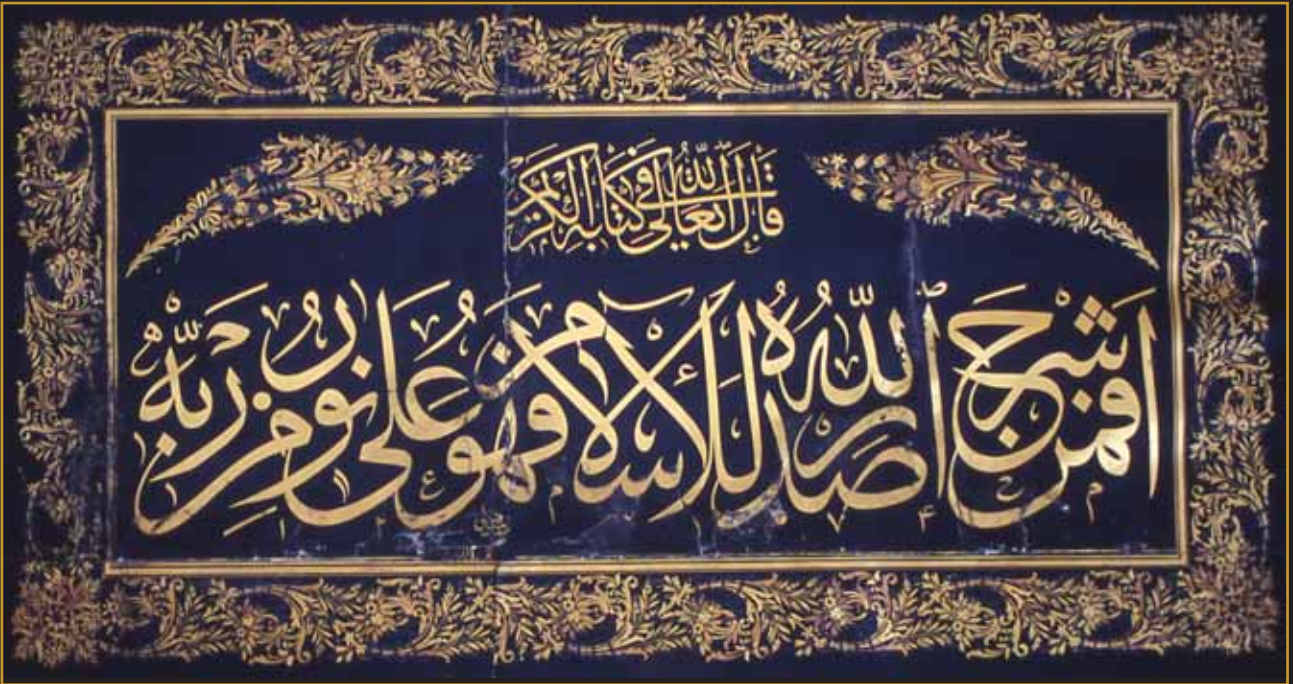 قَالَ اللّٰهُ تَعَالٰى فِي كِتَابِهِ الْكَرِيمِ
اَفَمَنْ شَرَحَ اللّٰهُ صَدْرَهُ لِلْاِسْلَامِ فَهُوَ عَلٰى نُورٍ مِنْ رَبِّهِ